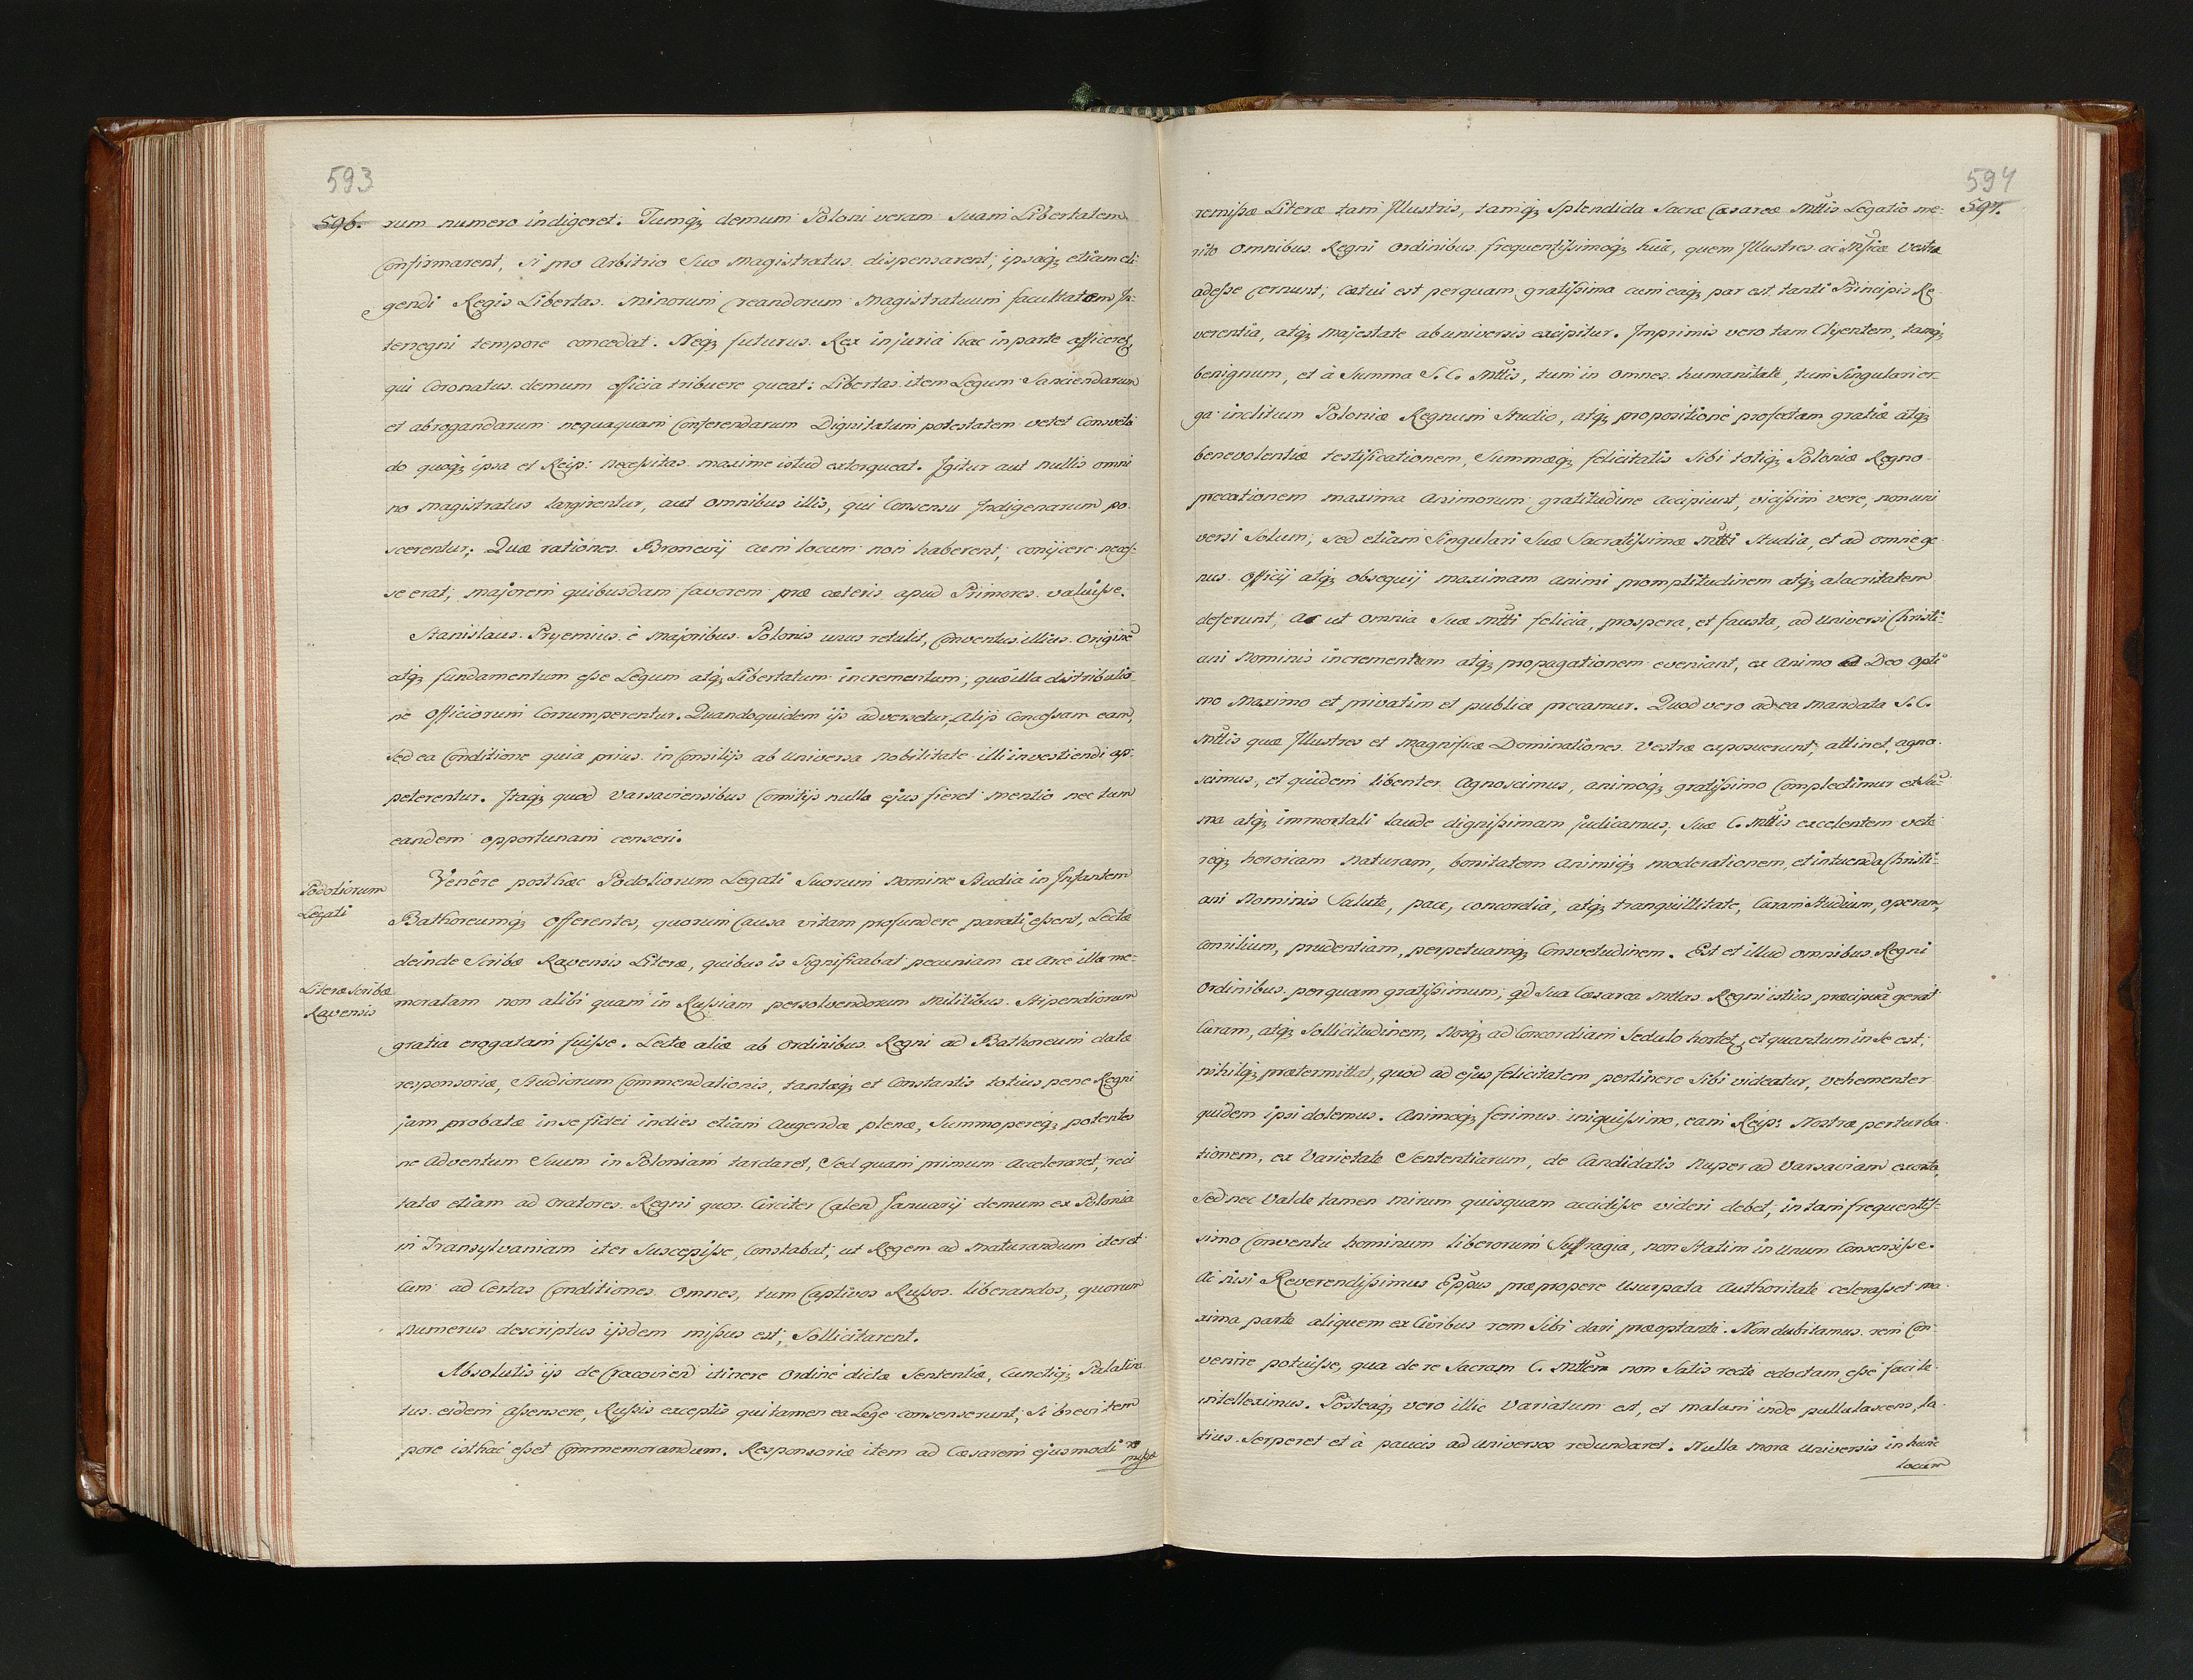 593
596.
rum numero indigeret. Tumq; demum Poloni veram suam Libertatem
Confirmarent, si pro Arbitrio Suo Magistratus dispensarent; ipsaq; etiam eli-
gendi Regis Libertas Minorum Creandorum Magistratuum facultatem In-
terregni tempore concedat. Neq; futurus Rex injuria hac in parte afficeret,
qui Coronatus demum officia tribuere queat: Libertas item Legum Sanciendarum
et abrogandarum nequaquam Conferendarum Dignitatum potestatem vetet Consvetu
do quoq; ipsa et Reip: necessitas maxime istud extorqueat. Igitur aut nullis omni
no magistratus largirentur, aut omnibus illis, qui Consensu Indigenarum po-
scerentur; Quæ rationes Bronevij cum locum non haberent; conijcere neces-
se erat; majorem quibusdam favorem præ cæteris apud Primores valuisse.
Stanislaus Pryemius è majoribus Polonis unus retulit, Conventus illius Origine
atq; fundamentum esse Legum atq; Libertatum incrementum; quæ illa distributio-
ne Officiorum Corrumperentur. Quandoquidem ijs adversetur, Alijs Concessam eam,
Sed ea Conditione quia prius in Consilijs ab Universa Nobilitate illi investiendi ap-
peterentur. Itaq; quod Varsaviensibus Comitijs nulla ejus fieret mentio nec tum
eandem opportunam censeri.
Podoliorum
Legati
Venêre post hac Podoliorum Legati Suorum Nomine Studia in Infantem
Bathoreumq; offerentes, quorum Causa vitam profundere parati essent, Lectæ
deinde Scribæ Ravensis Literæ, quibus is Significabat pecuniam ex Arce illa me-
Literæ Scribæ
Ravensis
moratam non alibi quam in Russiam persolvendorum Militibus Stipendiorum
gratia erogatam fuisse. Lectæ aliæ ab Ordinibus Regni ad Bathoreum datæ
responsoriæ, Studiorum Commendationis, tantæq; et Constantis totius pene Regni
jam probatæ in se fidei indies etiam Augendæ plenæ, Summopereq; potentes
ne Adventum Suum in Poloniam tardaret, Sed quam primum Acceleraret, reci
tatæ etiam ad Oratores Regni quos Circiter Calend Januarij demum ex Polonia
in Transylvaniam iter Suscepisse, Constabat; ut Regem ad Maturandum iter et
Cum ad Certas Conditiones Omnes, tum Captivos Russos liberandos, quorum
Numerus descriptus ijsdem missus est; Sollicitarent.
Absolutis ijs de Cracovien itinere Ordine dictæ Sententiæ, Cunctiq; Palatina
tus eidem Assensere, Russis exceptis qui tamen ea Lege consenserunt; Si brevi tem
pore isthac esset Commemorandum. Responsoriæ item ad Cæsarem ejusmodi re
missæ
594
597.
remissæ Literæ tam Illustris, tamq; Splendida Sacræ Cæsareæ Mttis Legatio me-
rito Omnibus Regni Ordinibus frequentissimoq; huic, quem Illustres ac Mficæ Vestræ
adesse Cernunt; Cætui est perquam gratissima cum eaq; par est tanti Principis Re-
verentia, atq; Majestate ab universis excipitur. Imprimis vero tam Clyentem, tamq;
benignum, et à Summa S. C. Mttis, tum in Omnes humanitate, tum Singulari er-
ga inclitum Poloniæ Regnum Studio, atq; propositione profectam gratiæ atq;
benevolentiæ testificationem, Summæq; felicitatis Sibi totiq; Poloniæ Regno
precationem maxima Animorum gratitudine Accipiunt, vicissim vere, non uni
versi Solum, sed etiam Singulari Suæ Sacratissimæ Mtti Studia, et ad omne ge-
nus Officij atq; obsequij maximam animi promptitudinem atq; alacritatem
deferunt; Ac ut Omnia Suæ Mtti felicia, prospera, et fausta, ad Universi Christi-
ani Nominis incrementum atq; propagationem eveniant, ex Animo Deo Opti
mo Maximo et privatim et publice precamur. Quod vero ad ea mandata S. C.
Mttis quæ Illustres et Magnificæ Dominationes Vestræ exposuerunt; attinet, agno-
scimus, et quidem libenter Agnoscimus, animoq; gratissimo Complectimur et Su-
ma atq; immortali laude dignissimam judicamus; Suæ C. Mttis excelentem vete
req; heroicam Naturam, bonitatem Animiq; moderationem, et intuenda Christi-
ani Nominis Salute, pace, concordia, atq; tranquillitate, Curam Studium, operam,
Consilium, prudentiam, perpetuamq; Consvetudinem. Est et illud omnibus Regni
Ordinibus perquam gratissimum; qd Sua Cæsarea Mttas Regni istius præcipuã gerat
Curam, atq; Sollicitudinem, Nosq; ad Concordiam Sedulo hortet, et quantum in Se est;
nihilq; prætermittat, quod ad ejus felicitatem pertinere Sibi videatur, vehementer
quidem ipsi dolemus. Animoq; ferimus iniquissimo, eam Reip: Nostræ perturba-
tionem, ex Varietate Sententiarum, de Candidatis Nuper ad Varsaviam exorta,
Sed nec Valde tamen mirum quisquam accidisse videri debet; in tam frequentis-
simo Conventu hominum liberorum Suffragia, non Statim in Unum Consensisse.
Ac nisi Reverendissimus Eppus præpropere Usurpata Authoritate celerasset ma-
xima parte aliquem ex Civibus rem Sibi dari præoptante. Non dubitamus rem Con-
venire potuisse, qua de re Sacram C. Mttem non Satis recte edoctam esse facile
intelleximus. Posteaq; vero illic Variatum est, et malam inde pullulascens, la-
tius Serperet et à paucis ad universos redundaret. Nulla mora Universis in hunc
locum